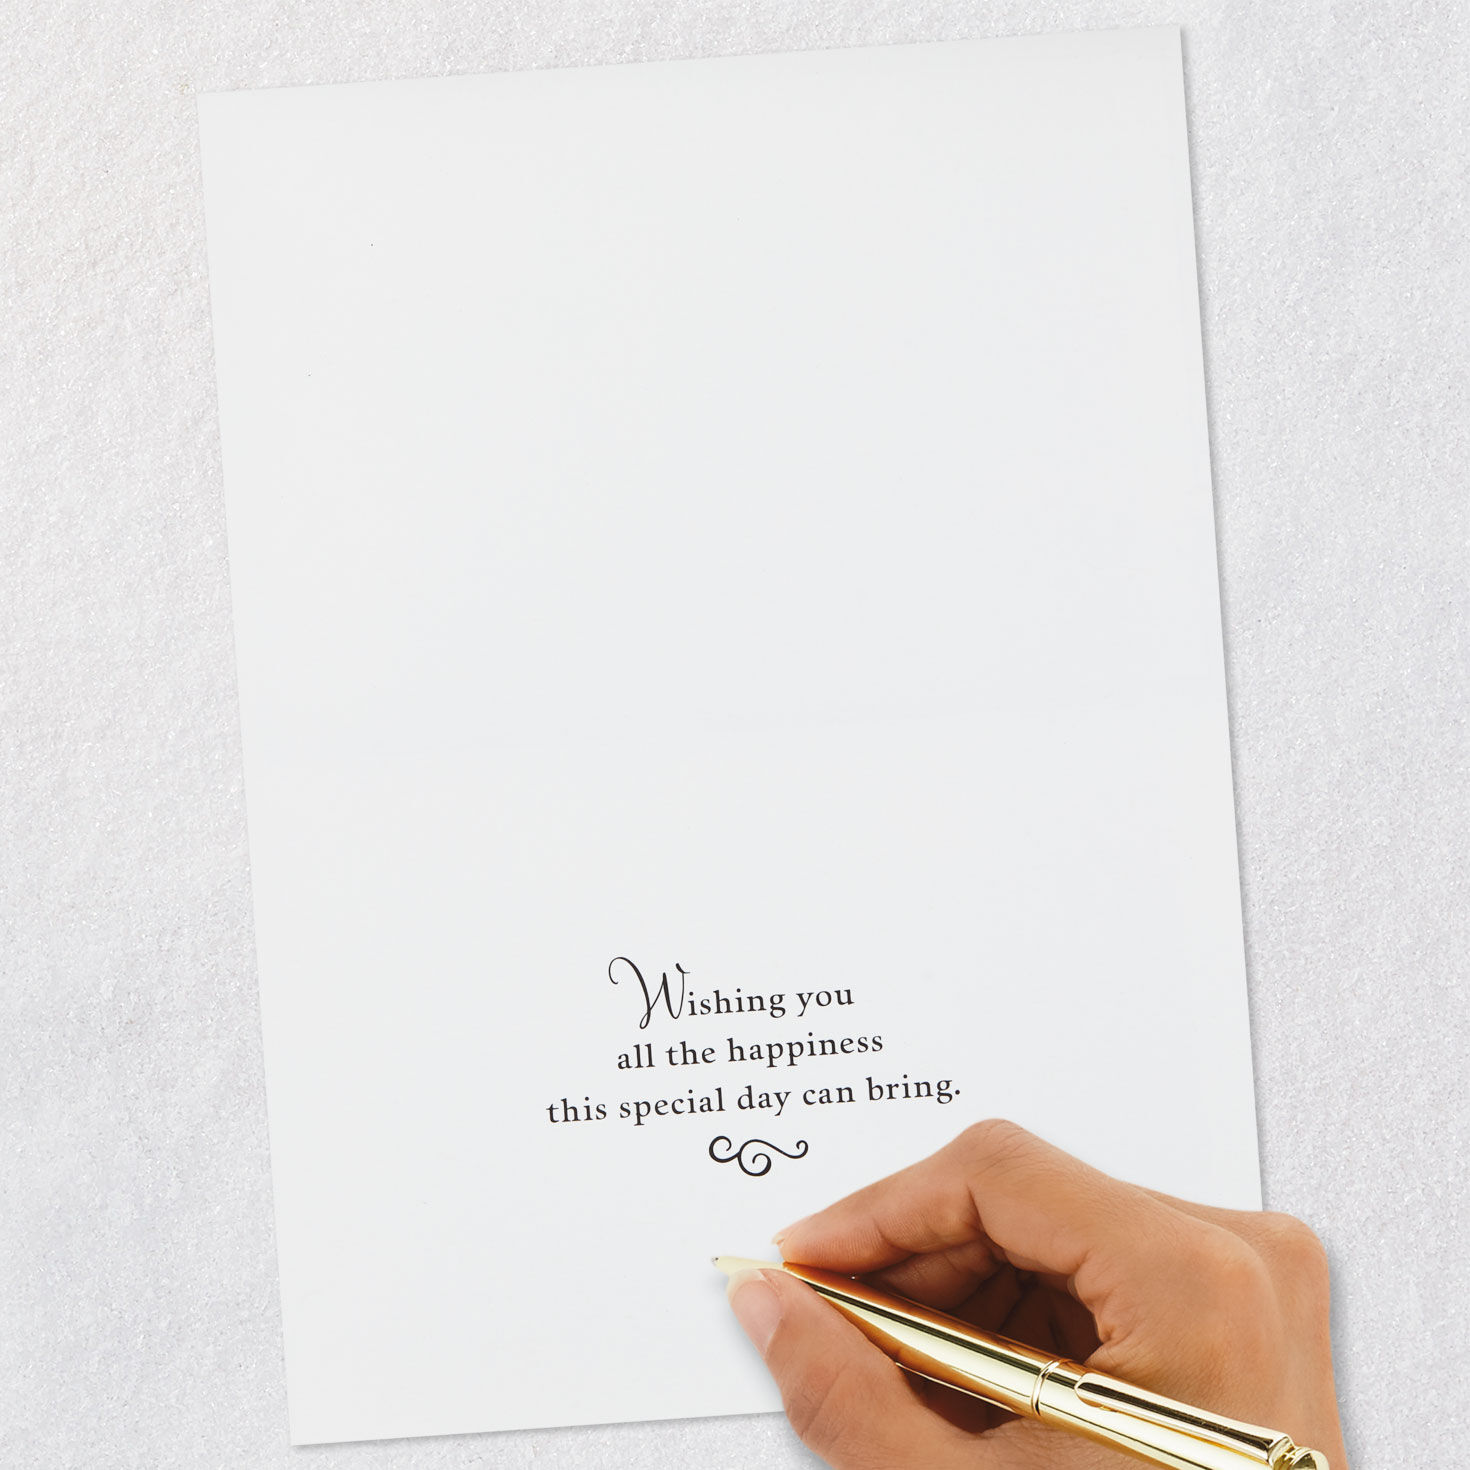 Wishing you
all the happiness
this special day can bring.